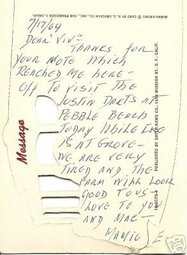 7/17/64
Dear Viv:
Thanks for
your note which
reached me here -
off to visit the
Justin Darts at
Pebble Beach
today while Ike
is at Grove -
we are very
tired and the
farm will look
good to us -
love to you
and Mac -
Mamie E
Message